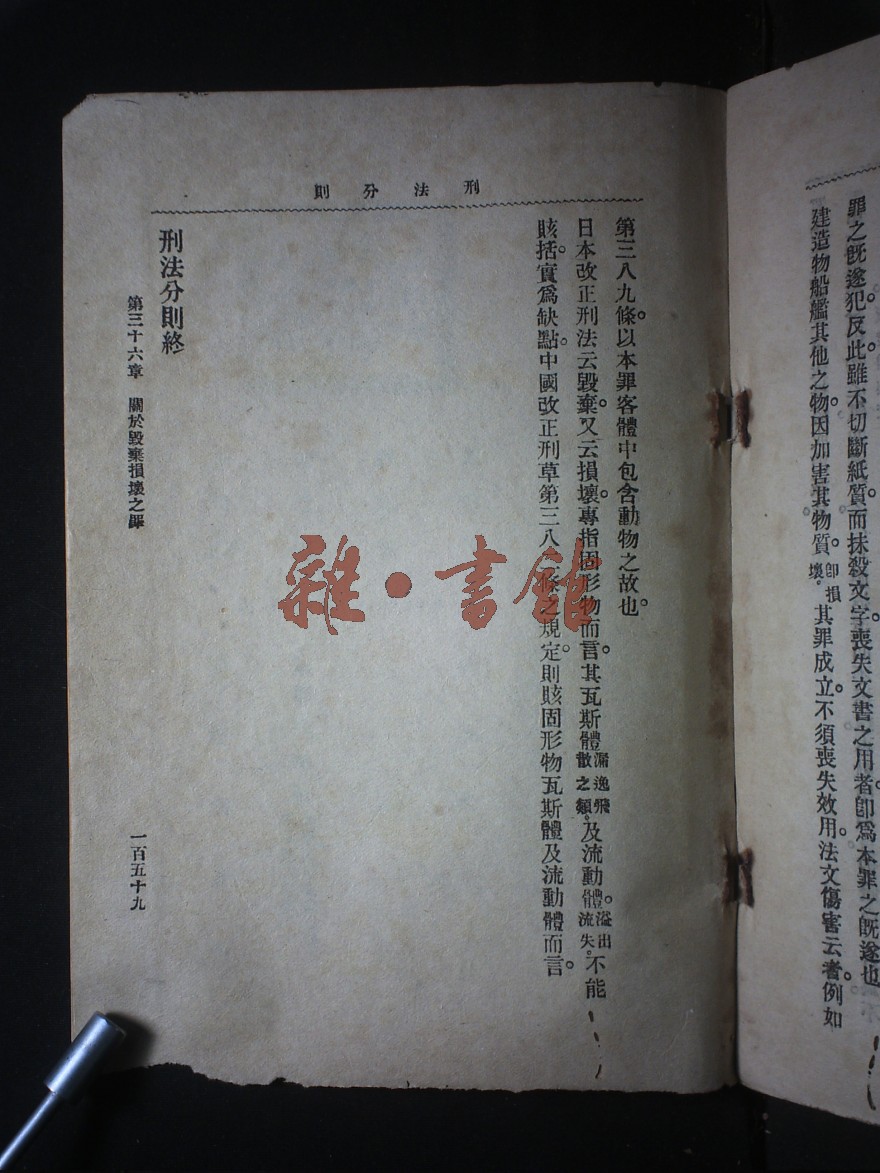 罪之既遂犯。反此雖不切斷紙質。而抹殺文字。喪失文書之用者。卽爲本罪之既遂也
建造物船艦其他之物。因加害其物質。卽損壞。其罪成立。不須喪失效用。法文傷害云者。例如
刑法分則
第三八九條。以本罪客體中包含動物之故也。
日本改正刑法云毀棄。又云損壞。專指固形物而言。其瓦斯體漏逸飛散之類。及流動體。溢出流失。不能
賅括。實爲缺點。中國改正刑草第三八 條之規定。則賅固形物瓦斯體及流動體而言。
刑法分則終
第三十六章 關於毀棄損壞之罪
一百五十九
雜·書館